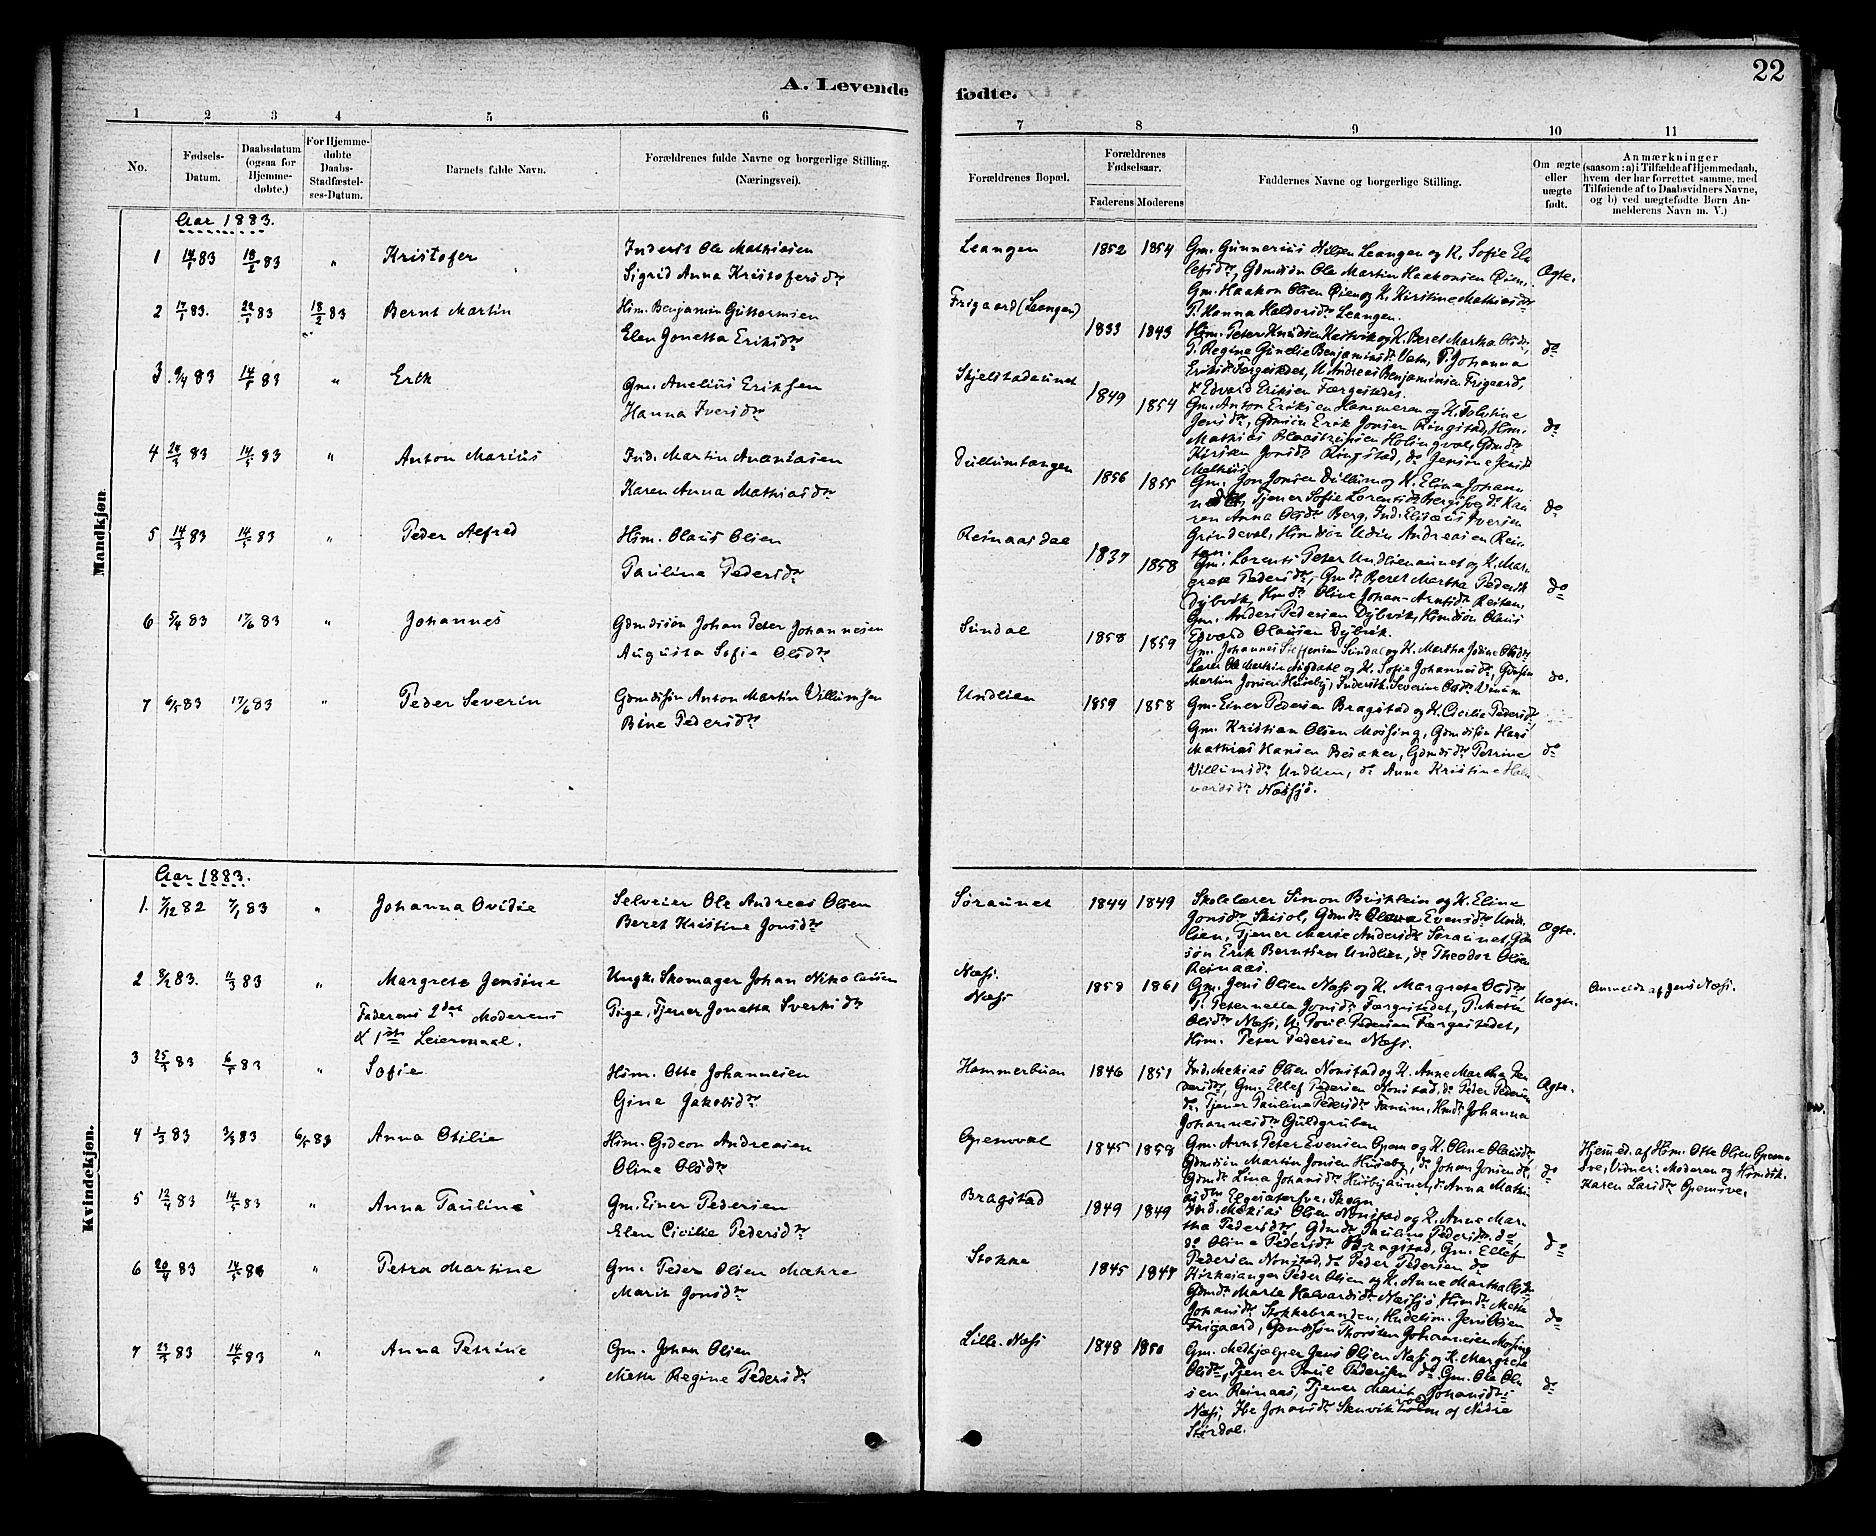 22
A. Levende fødte.
1 2 3 4 5 6 7 8 9 10 11
No.
Fødsels-Datum.
Daabsdatum (ogsaa for Hjemmedøbte.)
For Hjemmedøbte Daabs-Stadfæstelses-Datum.
Barnets fulde Navn.
Forældrenes fulde Navne og borgerlige Stilling.
(Næringsvei).
Forældrenes Bopæl.
Forældrenes Fødselsaar.
Faderens Moderens
Faddernes Navne og borgerlige Stilling.
Om ægte eller uægte født.
Anmærkninger
(saasom: a) i Tilfælde af Hjemmedaab,
hvem der har forrettet samme, med
Tilføiende af to Daabsvidners Navne,
og b) ved uægtefødte Børn Anmelderens Navn m. V.)
Mandkjøn.
Aar 1883.
1 14/1 83 18/2 83 " Kristofer
Inderst Ole Mathiasen
Sigrid Anna Kristofersdtr
Leangen 1852 1854
Gm. Gunnerius Nilsen Leangen og K. Sofie El-
lefsdtr, Gdmdsøn Ole Martin Haakonsen Øien,
Gm. Haakon Olsen Øien og K. Kirstine Mathiasdtr
P. Hanna Haldorsdtr Leangen.
Ægte.
2 17/1 83. 22/1 83 18/2 83 Bernt Martin
Hsm. Benjamin Guttormsen
Elen Jonetta Eriksdtr
Frigaard (Leangen) 1833 1843
Hsm. Peter Knudsen Hestvik og K. Beret Martha Olsdtr,
P. Regine Gurelie Benjaminsdtr Vatn, P. Johanna
Eriksdtr Færgestedet, U. Andreas Benjaminsen Frigaard,
U. Edvard Eriksen Færgestedet.
do
3. 9/4 83 14/5 83 " Erik
Gm. Anelius Eriksen
Hanna Iversdtr
Skjelstadaunet 1849 1854
Gm. Anton Eriksen Hammeren og K.
Jensdtr, Gdmdsøn Erik Jonsen Ringstad, Hsm.
Mathias Holingval, Gdmdtr
Kirsten Jonsdtr Ringstad, do Jensine Jensdtr
do
4 24/3 83 14/5 83 " Anton Marius
Ind. Martin Ananiasen
Karen Anna Mathiasdtr
Dullumtangen 1856 1855
Gm. Jon Jonsen Dullum og K. Elina Johann
Tjener Sofie Lorentsdtr Bergsveg, do Ka-
ren Anna Olsdtr Berg, Ind. Elisæus Iversen
Grindeval, Hsmdsøn Udin Andreasen Rei-
tan.
do
5 14/3 83 14/5 83 " Peder Alfred
Hsm. Olaus Olsen
Paulina Pedersdtr
Reinaasdal 1837 1858
Gm. Lorents Peter Undlienaunet og K. Mar-
grete Pedersdtr, Gmdtr Beret Martha Pedersdtr
Dybvik, Hmdtr Oline Johan-Arntsdtr Reitan,
Gm. Anders Pedersen Dybvik, Hsmdsøn Olaus
Edvard Olausen Dybvik.
do
6 5/4 83 17/6 83 " Johannes
Gdmdsøn Johan Peter Johannesen
Augusta Sofie Olsdtr
Sundal 1858 1859
Gm. Johannes Steffensen Sundal og K. Martha Jodine Olsdtr
Lærer Ole Martin Aagdahl og K. Sofie Johannesdtr, Gdmdsøn
Martin Jonsen Huseby, Inderstk. Severine Olsdtr
do.
7 6/5 83 17/6 83 " Peder Severin
Gdmdsøn Anton Martin Villumsen
Bine Pedersdtr
Undlien 1859 1858
Gm. Einer Pedersen Bragstad og K. Cicilie Pedersdtr,
Gm. Kristian Olsen Mossing, Gdmdsøn Hans
Mathias Hansen Besaker, Gdmdsdtr Petrine
Villumsdtr Undlien, do Anne Kristine Hal-
vardsdtr Næssjø.
do
Kvindekjøn.
Aar 1883.
1. 7/12 82 7/1 83 " Johanna Ovidie
Selveier Ole Andreas Olsen
Beret Kristine Jonsdtr
Søraunet 1844 1849
Skolelærer Simon Bustlein og K. Eline
Jonsdtr Skisol, Gdmdtr Olava Evensdtr Und-
lien, Tjener Marie Andersdtr Søraunet, Gdmd-
søn Erik Berntsen Undlien, do Theodor Olsen
Reinaas.
Ægte.
2 8/2 83. 11/3 83 " Margrete Jensine
Faderens 2det Moderens
& 1ste Leiermaal.
Ungk. Skomager Johan Nikolaisen
Pige, Tjener Jonetta Sverksdtr
Næss.
Næss 1858 1861
Gm. Jens Olsen Næss og K. Margrete Olsdtr,
P. Peternelle Jonsdtr Færgestedet, P. Mette
Olsdtr Næss, U. Poul Pedersen Færgestedet,
Hsm. Peter Pedersen Næss.
Uægte.
Anmeldt af Jens Næss.
3 25/3 83 6/5 83 " Sofie
Hsm. Otte Johannesen
Gina Jakobsdtr
Hammerbuan 1846 1851
Ind. Mekias Olsen Nonstad og K. Anne Martha Pe-
dersdtr, Gm. Ellef Pedersen Nonstad, do Peder Pedersen
do, Tjener Pauline Pedersdtr Fanum, Hmdtr Johanna
Johannesdtr Guldgruben
Ægte.
4 1/3 83 3/3 83 6/5 83 Anna Otilie
Hsm. Gideon Andreasen
Oline Olsdtr
Openoval 1845 1858
Gm. Arnt Peter Evensen Openo og K. Oline Olausdtr,
Gdmdsøn Martin Jonsen Huseby, do Johan Jonsen do,
Gdmdtr Lina Johansdtr Husbyaunet, do Anna Mathi-
asdtr Skogn
do
Hjemmed. af Hsm. Otte Olsen Openo-
sve, Vidner: Moderen og Hsmdsk.
Karen Larsdtr Openosve.
5 12/4 83 14/5 83 " Anna Pauline
Gm. Einer Pedersen
Elen Cicilie Pedersdtr
Bragstad 1849 1849
Ind. Mekias Olsen Nonstad og K. Anne Mar-
tha Pedersdtr, Gdmdtr Pauline Pedersdtr do,
do Olina Pedersdtr Bragstad, Gm. Ellef
Pedersen Nonstad, do Peder Pedersen do
do
6 20/4 83 14/5 83 " Petra Martine
Gm. Peder Olsen Mæhre
Marit Jonsdtr
Stokke 1845 1847
Kirkesanger Peder Olsen og K. Anne Martha Olsdtr
Gdmdtr Marta Halvardsdtr Næssjø, Hsmdtr Mette
Johansdtr Stokkebranden, Hsm. Jens Olsen
Frigaard, Gdmdsøn Thorsten Johannesen Mossing
do
7 23/3 83 14/5 83 " Anna Petrine
Gm. Johan Olsen
Mette Regine Pedersdtr
Lille-Næss 1848 1850
Gm. Medhjælper Jens Olsen Næss og K. Margrete
Olsdtr, Tjener Poul Pedersen do, Gm. Ole Ol-
sen Reinaas, Tjener Marit Johansdtr
Næss, Johansdtr af Nedre
Størdal.
do